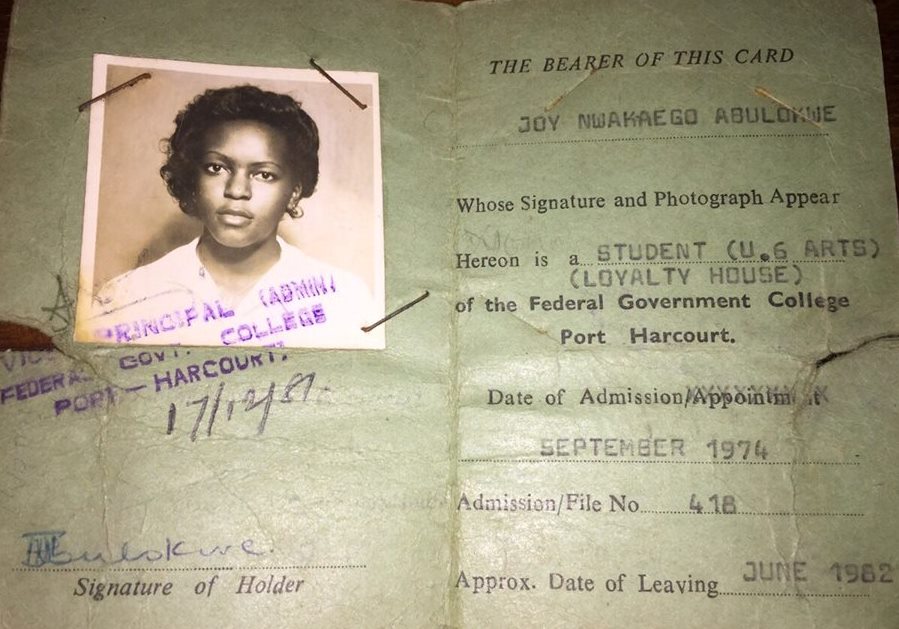 PRINCIPAL (ADMIN)
FEDERAL GOVT. COLLEGE
PORT-HARCOURT.
17/12/81
Abulokwe.
Signature of Holder
THE BEARER OF THIS CARD
JOY NWAKAEGO ABULOKWE
Whose Signature and Photograph Appear
Hereon is a STUDENT (U.6 ARTS)
(LOYALTY HOUSE)
of the Federal Government College
Port Harcourt.
Date of Admission/Appointment
SEPTEMBER 1974
Admission/File No 418
Approx. Date of Leaving JUNE 1982